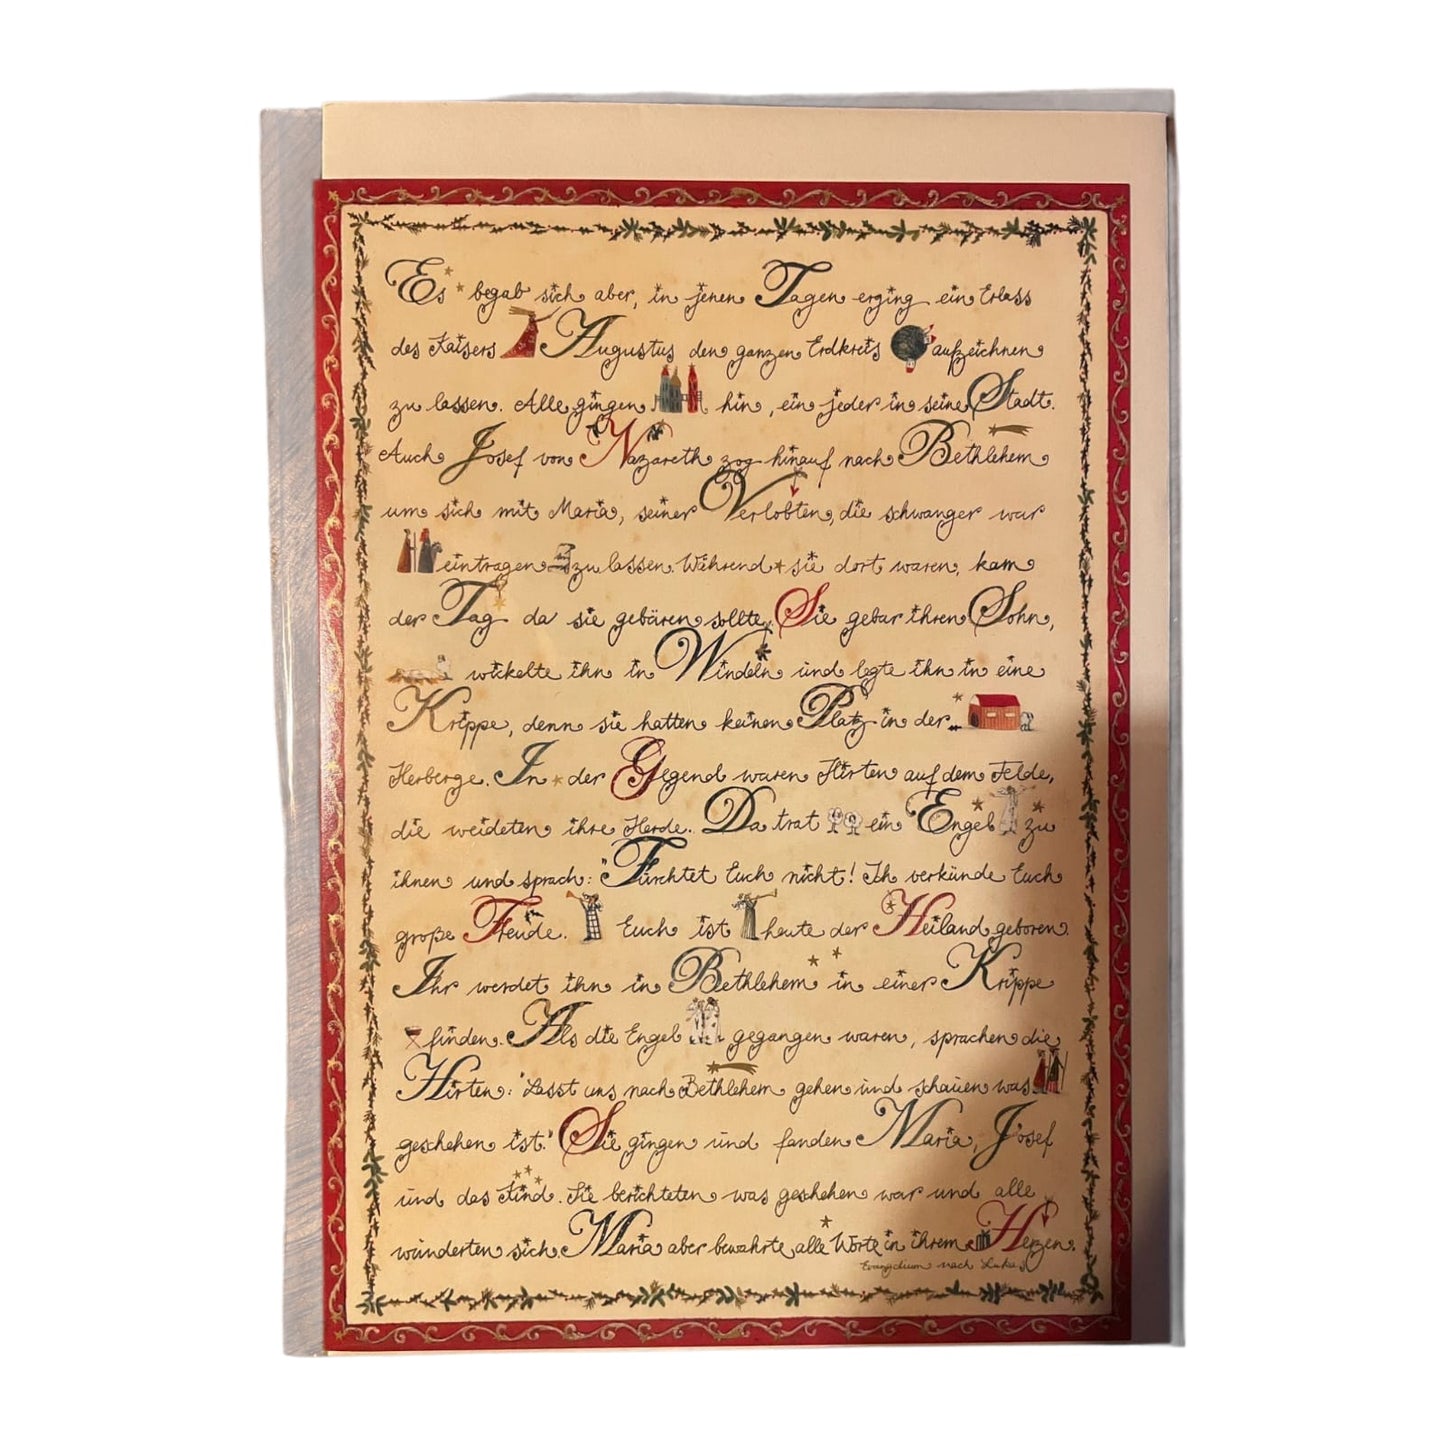 Es begab sich aber, in jenen Tagen erging ein Erlass
des Kaisers Augustus den ganzen Erdkreis aufzeichnen
zu lassen. Alle gingen hin, ein jeder in seine Stadt.
Auch Josef von Nazareth zog hinauf nach Bethlehem
um sich mit Maria, seiner Verlobten, die schwanger war
eintragen zu lassen. Während sie dort waren, kam
der Tag da sie gebären sollte. Sie gebar ihren Sohn,
wickelte ihn in Windeln und legte ihn in eine
Krippe, denn sie hatten keinen Platz in der
Herberge. In der Gegend waren Hirten auf dem Felde,
die weideten ihre Herde. Da trat ein Engel zu
ihnen und sprach: "Fürchtet Euch nicht! Ich verkünde Euch
große Freude. Euch ist heute der Heiland geboren.
Ihr werdet ihn in Bethlehem in einer Krippe
finden. Als die Engel gegangen waren, sprachen die
Hirten: "Lasst uns nach Bethlehem gehen und schauen was
geschehen ist." Sie gingen und fanden Maria, Josef
und das Kind. Sie berichteten was geschehen war und alle
wunderten sich. Maria aber bewahrte alle Worte in ihrem Herzen.
Evangelium nach Lukas